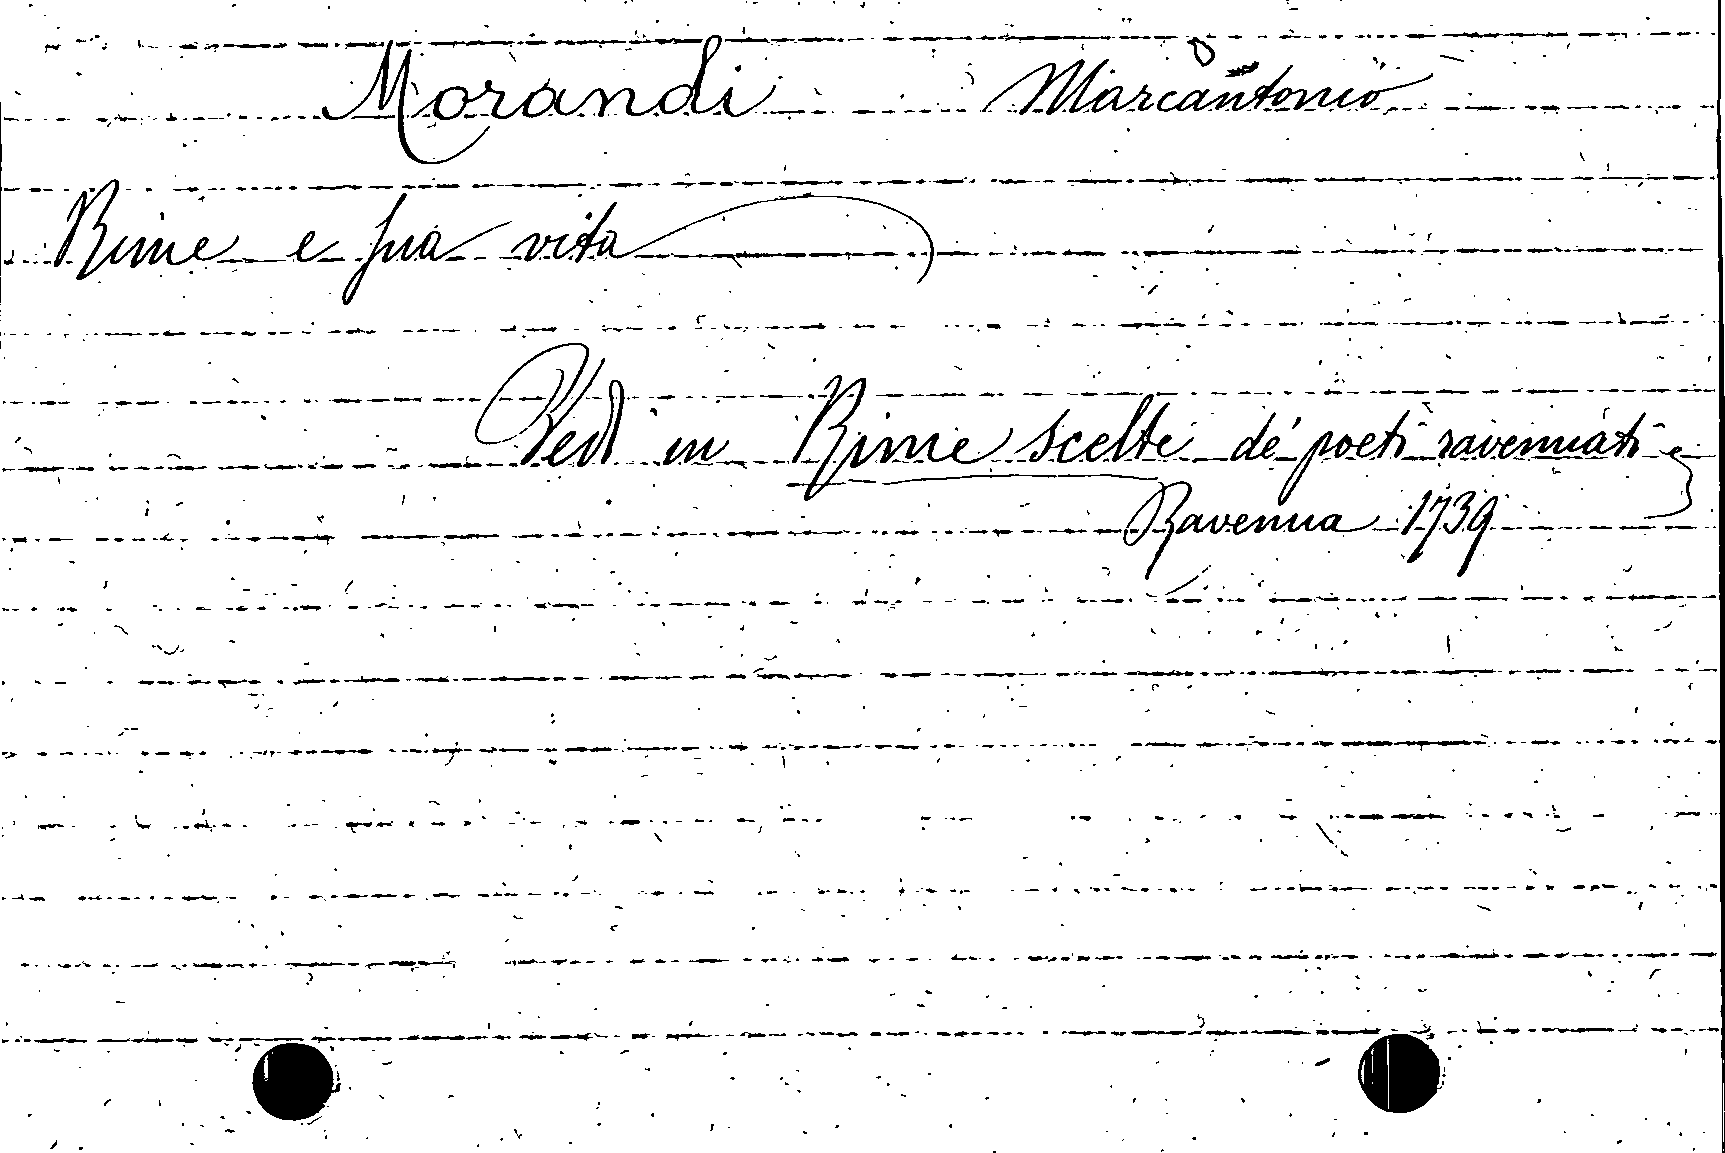 Morandi Marcantonio
Rime e sua vita
Vedi in Rime scelte de' poeti ravennati
Ravenna 1739